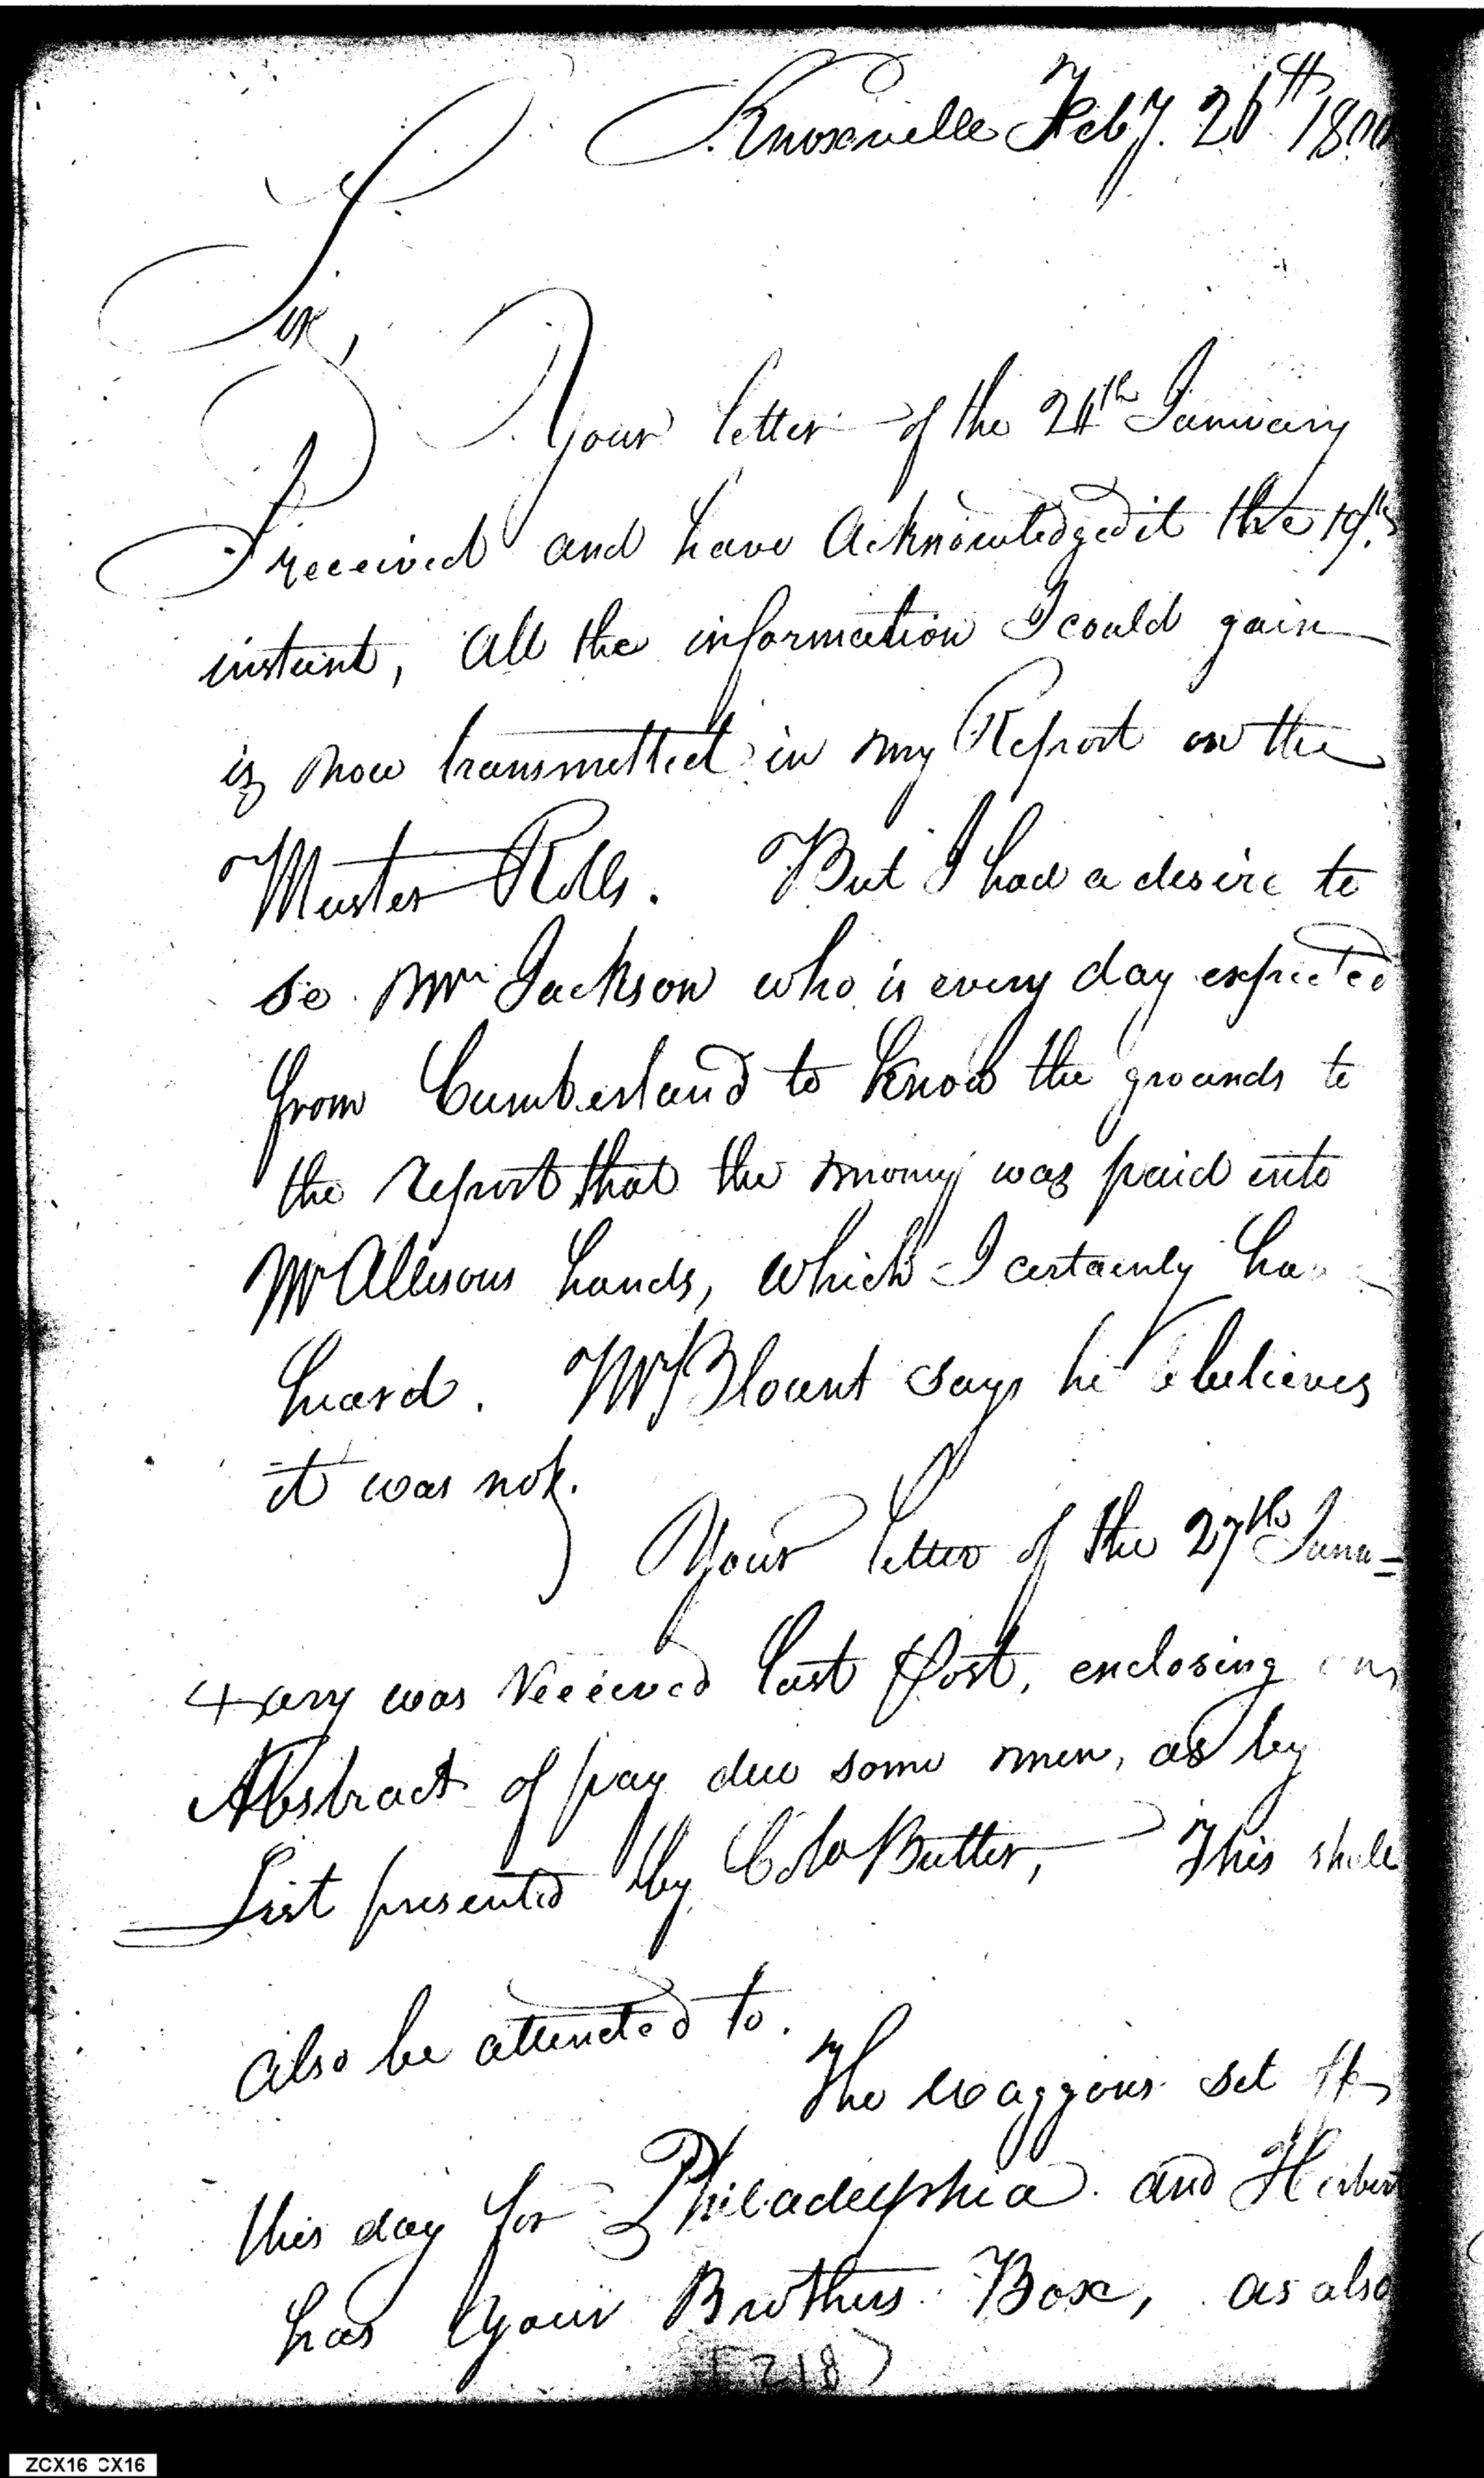 Knoxville Feby. 26th 1800
Sir,
Your letter of the 24th January
I received and have Acknowledged it the 19th
instant, All the information I could gain
is now transmitted in my Report on the
Muster Rolls. But I had a desire to
se Mr Jackson who is every day expected
from Cumberland to know the grounds to
the report that the mony was paid into
Mr Allisons hands, which I certainly ha
heard. Mr Blount says he believes
it was not.
Your letter of the 27th Janu=
=ary was received last Post, enclosing an
Abstract of pay due some men, as by
List presented by Colo Butler, This shall
also be attended to.
The waggons set
this day for Philadelphia and Herbert
has Your Brothers Box, as also
218
ZCX16 CX16